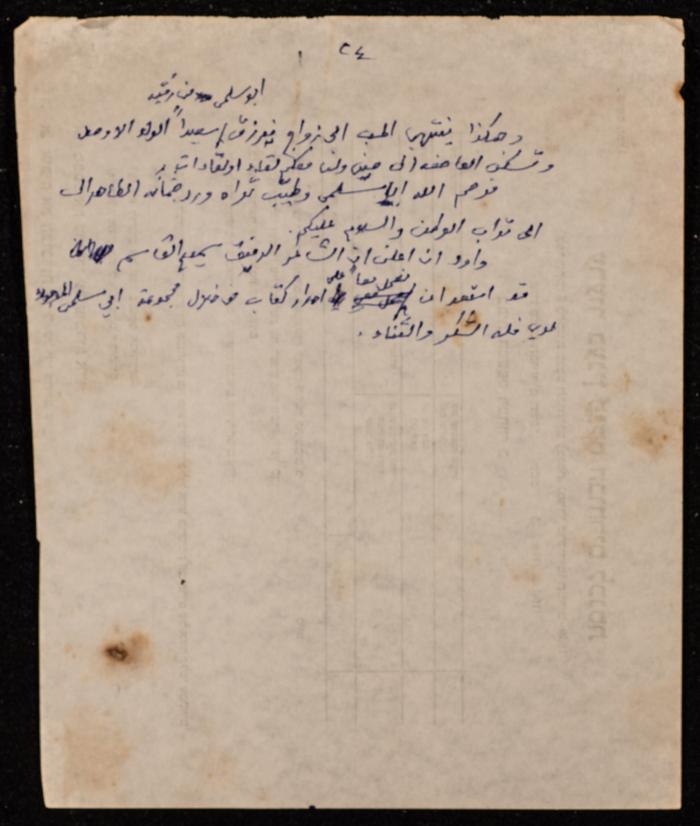 ٢٤
ابو سلمى من رقيد
وهكذا ينتهي الحب الى زواج فيرزق سعيداً الولد الاوحد
وتسكن العاصفه الى حين ولنا معكم لقاء او لقاءات
فرحم الله ابا سلمى وطيّب ثراه ورد جثمانه الطاهر الى
الى تراب الوطن والسلام عليكم.
واود ان اعلن ان الشاعر الرفيق سميح القاسم
قد استعد ان نعمل معاً على اصدار كتاب من خلال مجموعة ابي سلمى الموجودة
لدي فله الشكر والثناء.